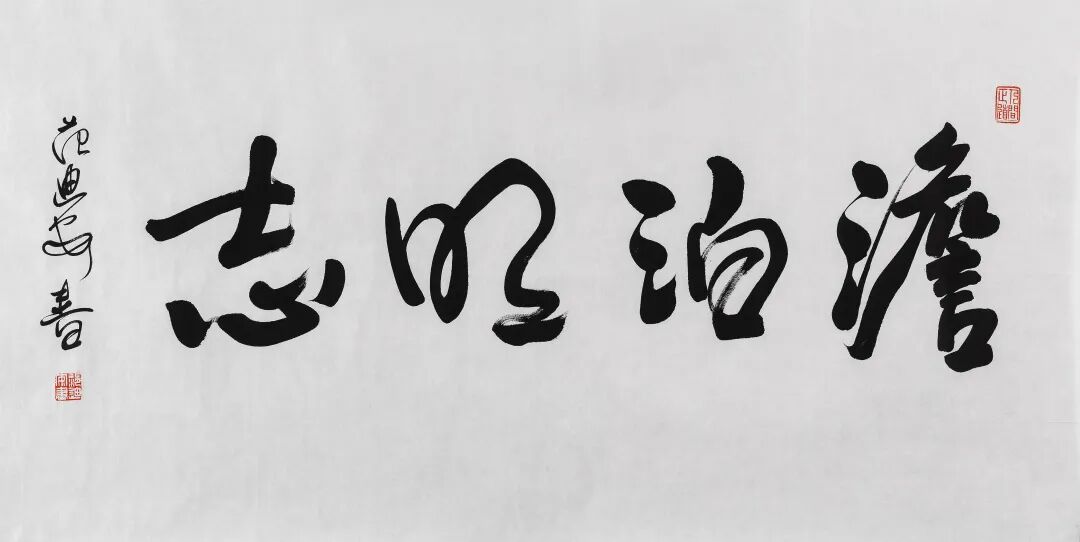 澹泊明志
范迪安書